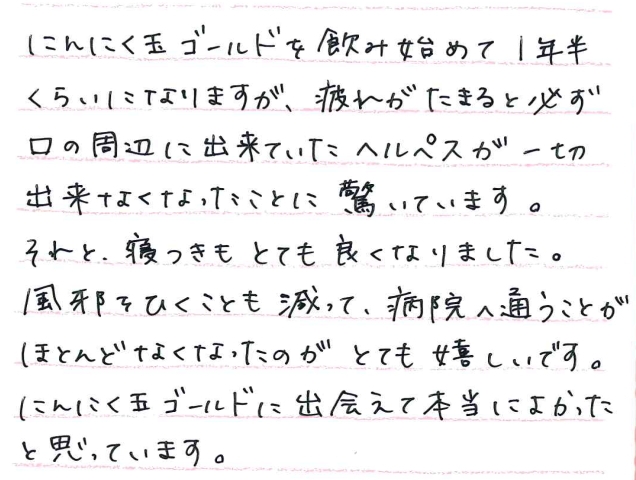 にんにく玉ゴールドを飲み始めて1年半
くらいになりますが、疲れがたまると必ず
口の周辺に出来ていたヘルペスが一切
出来なくなったことに驚いています。
それと、寝つきもとても良くなりました。
風邪をひくことも減って、病院へ通うことが
ほとんどなくなったのがとても嬉しいです。
にんにく玉ゴールドに出会えて本当によかった
と思っています。